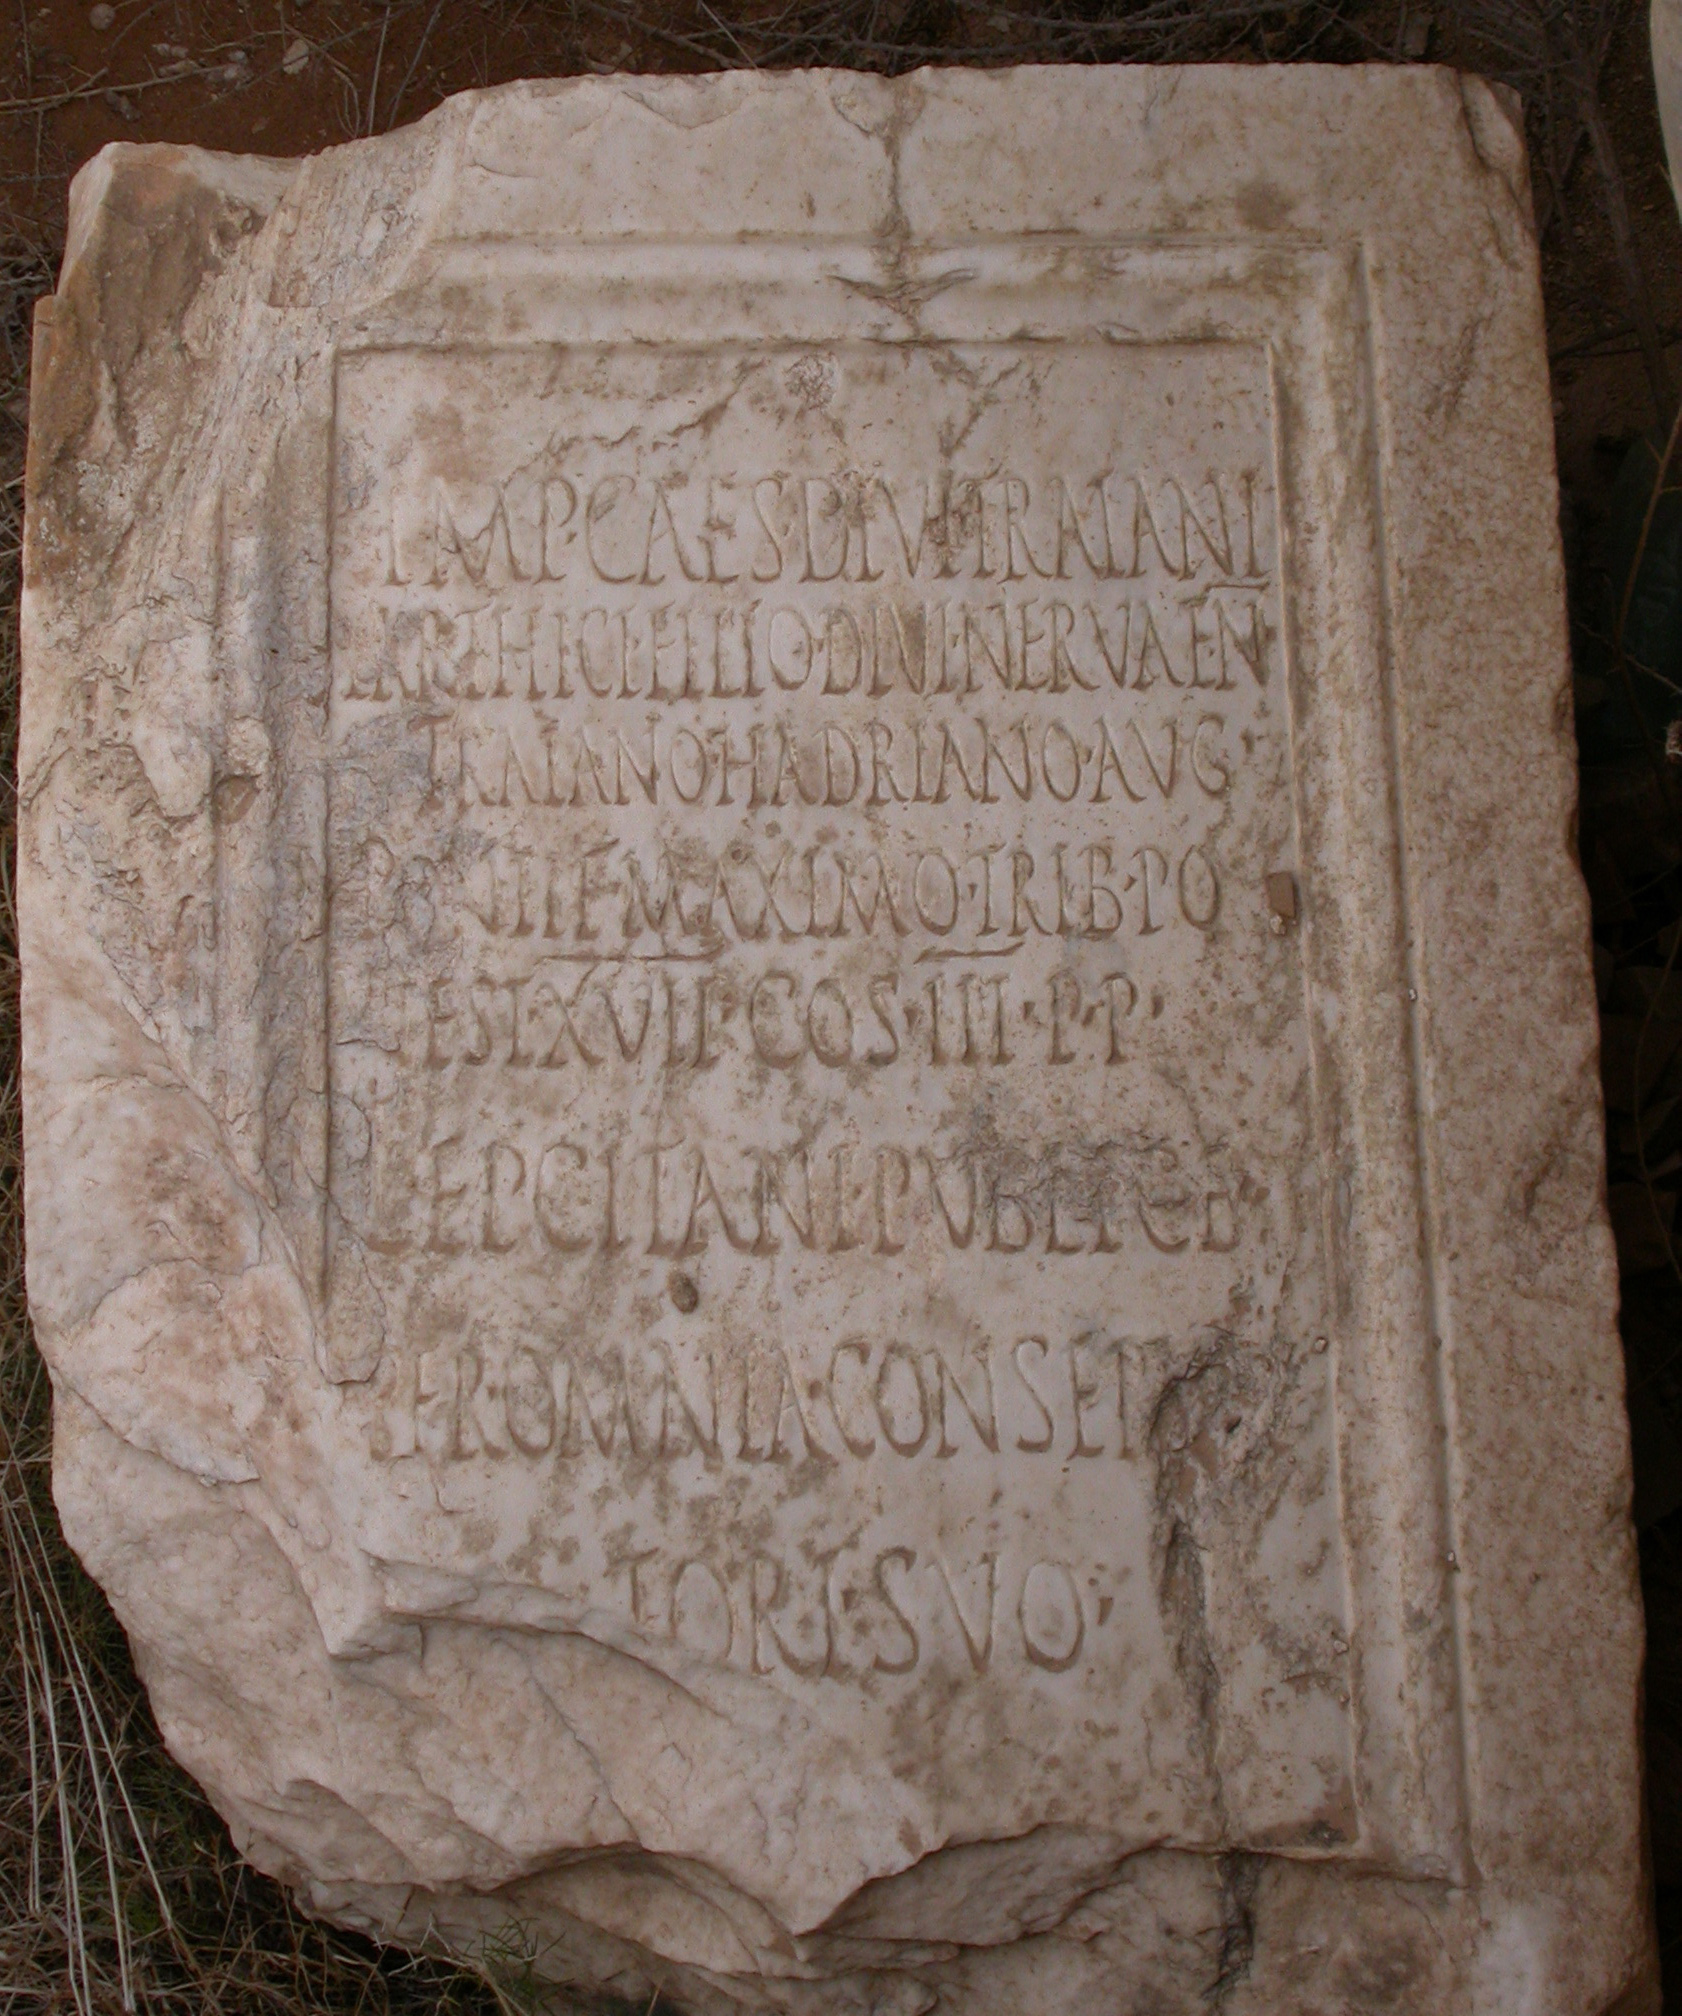 IMP·CAES·DIVI·TRAIANI
PARTHICI·FILIO·DIVI·NERVAE·N
TRAIANO·HADRIANO·AVG
PONTIF·MAXIMO·TRIB·PO
TEST·XVII·COS·III·P·P·
LEPCITANI·PVBLICE·
PER·OMNIA·CONSER
TORI·SVO·